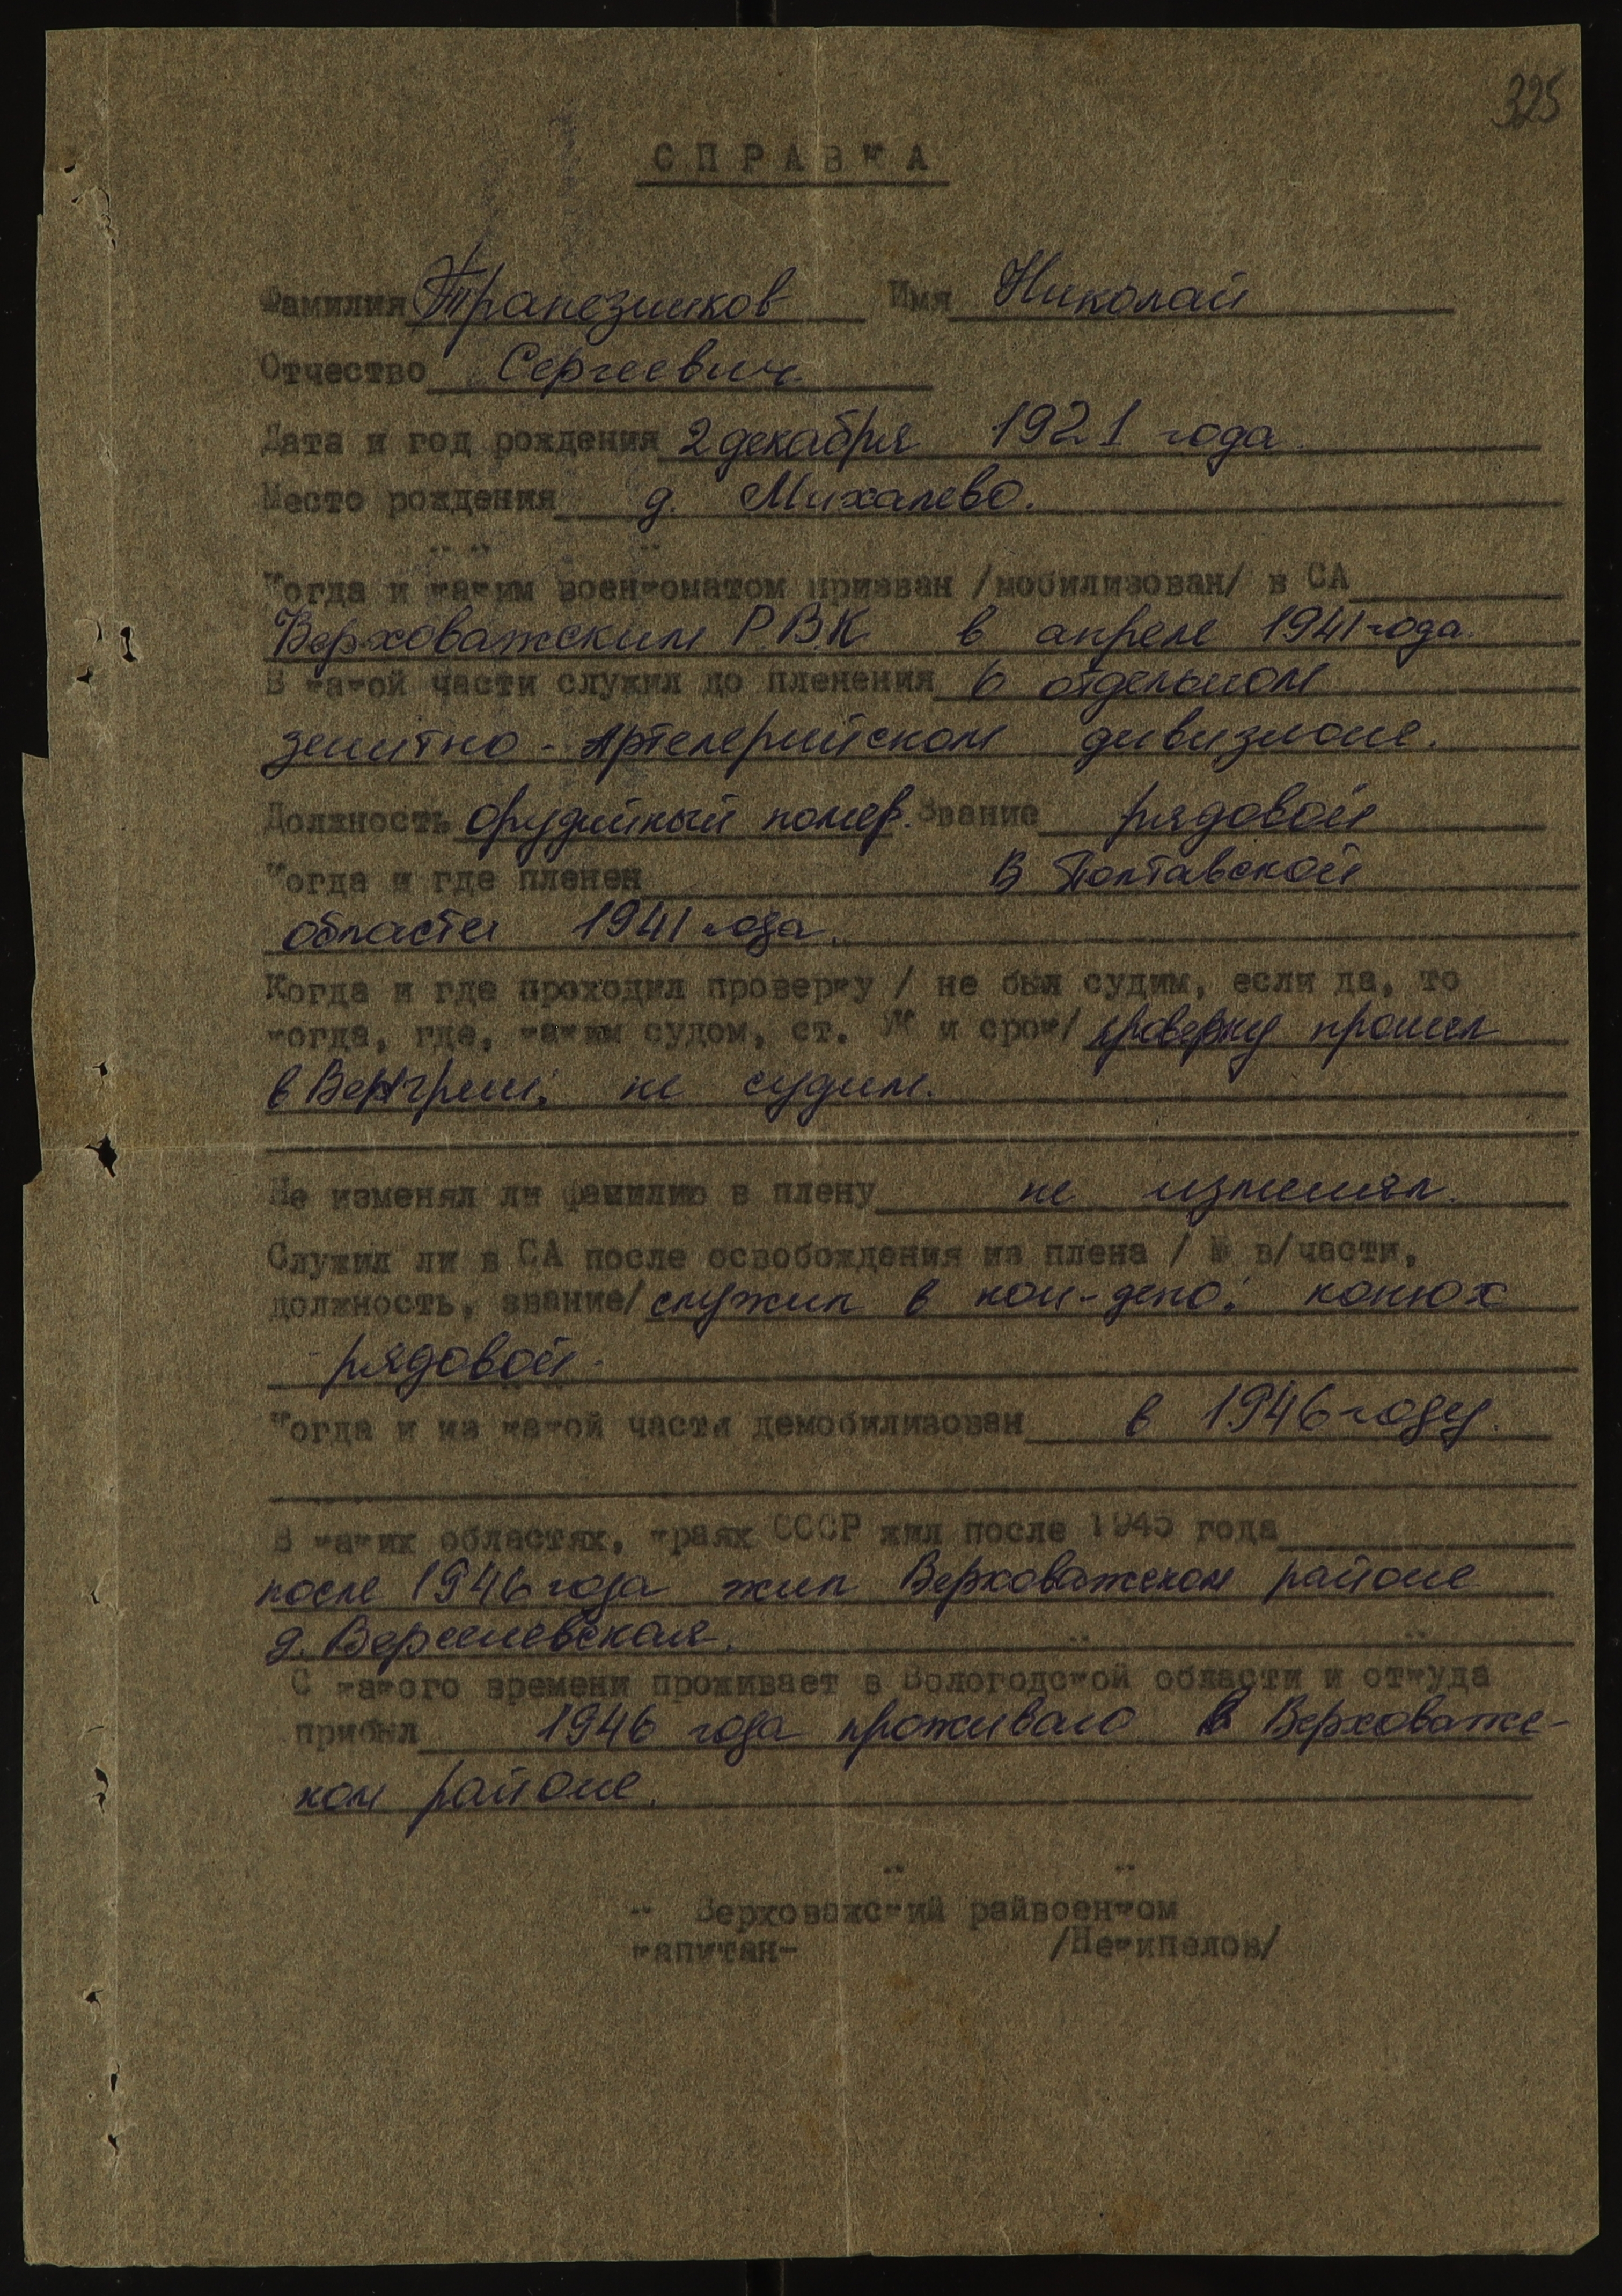 325
СПРАВКА
Фамилия Трапезников Имя Николай
Отчество Сергеевич.
Дата и год рождения 2 декабря 1921 года.
Место рождения д. Михалево.
Когда и каким военкоматом призван /мобилизован/ в СА
Верховажским Р.В.К в апреле 1941 года.
В какой части служил до пленения 6 отдельном
зенитно - Артелерийском дивизионе.
Должность орудийный номер. Звание рядовой
Когда и где пленен В Полтавской
области 1941 года.
Когда и где проходил проверку / не был судим, если да, то
когда, где, каким судом, ст. УК и срок/ проверку прошел
в Венгрии, не судим.
Не изменял ли фамилию в плену не изменял.
Служил ли в СА после освобождения из плена / № в/части,
должность, звание/ служил в кон-депо. конюх
рядовой.
Когда и из какой части демобилизован в 1946 году.
В каких областях, краях СССР жил после 1945 года
после 1946 года жил Верховажском районе
д.
С какого времени проживает в Вологодской области и откуда
прибыл 1946 года проживаю в Верховажс-
ком районе.
Верховажский райвоенком
капитан- /Некипелов/